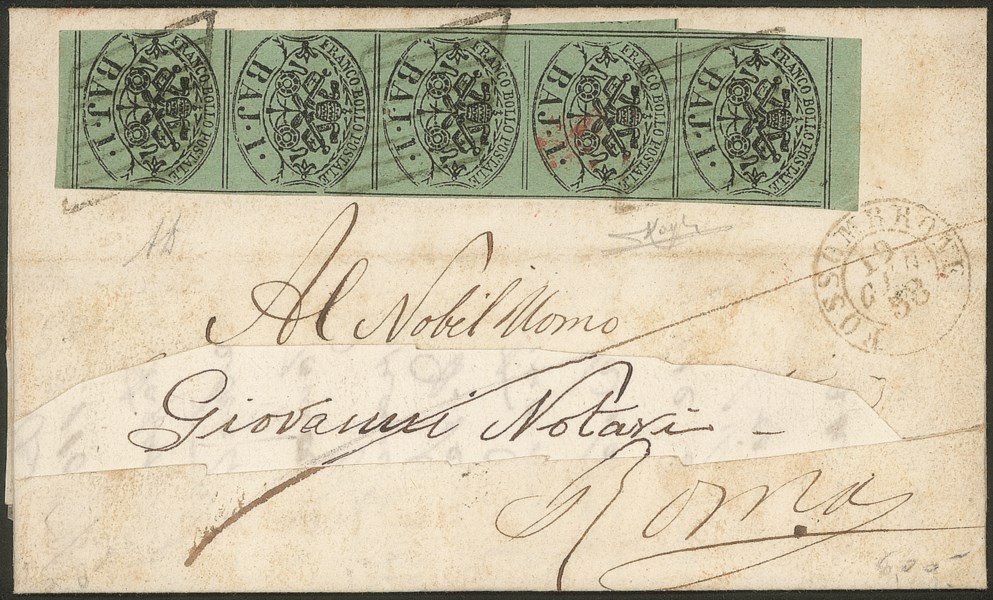 FRANCO BOLLO POSTALE
BAJ. 1.
FRANCO BOLLO POSTALE
BAJ. 1.
FRANCO BOLLO POSTALE
BAJ. 1.
FRANCO BOLLO POSTALE
BAJ. 1.
FRANCO BOLLO POSTALE
BAJ. 1.
FOSSOMBRONE
19
58
Al Nobil Uomo
Giovanni Notari -
Roma